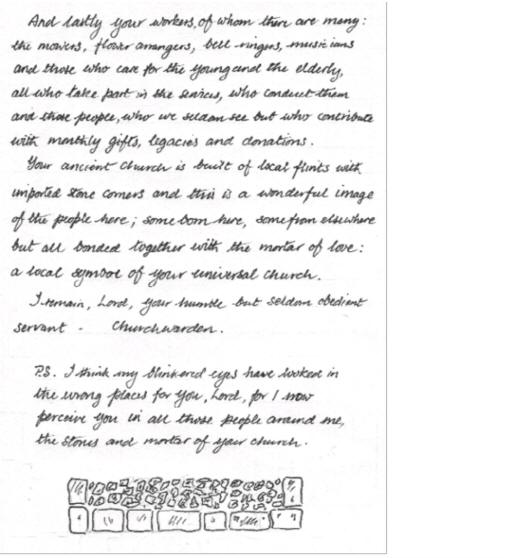 And lastly your workers, of whom there are many:
the mowers, flower arrangers, bell ringers, musicians
and those who care for the young and the elderly,
all who take part in the services, who conduct them
and those people, who we seldom see but who contribute
with monthly gifts, legacies and donations.
Your ancient Church is built of local flints with
imported stone corners and this is a wonderful image
of the people here; some born here, some from elsewhere
but all bonded together with the mortar of love:
a local symbol of your universal church.
I remain, Lord, your humble but seldom obedient
servant - Churchwarden.
P.S. I think my blinkered eyes have looked in
the wrong places for You, Lord, for I now
perceive you in all those people around me,
the stones and mortar of your church.